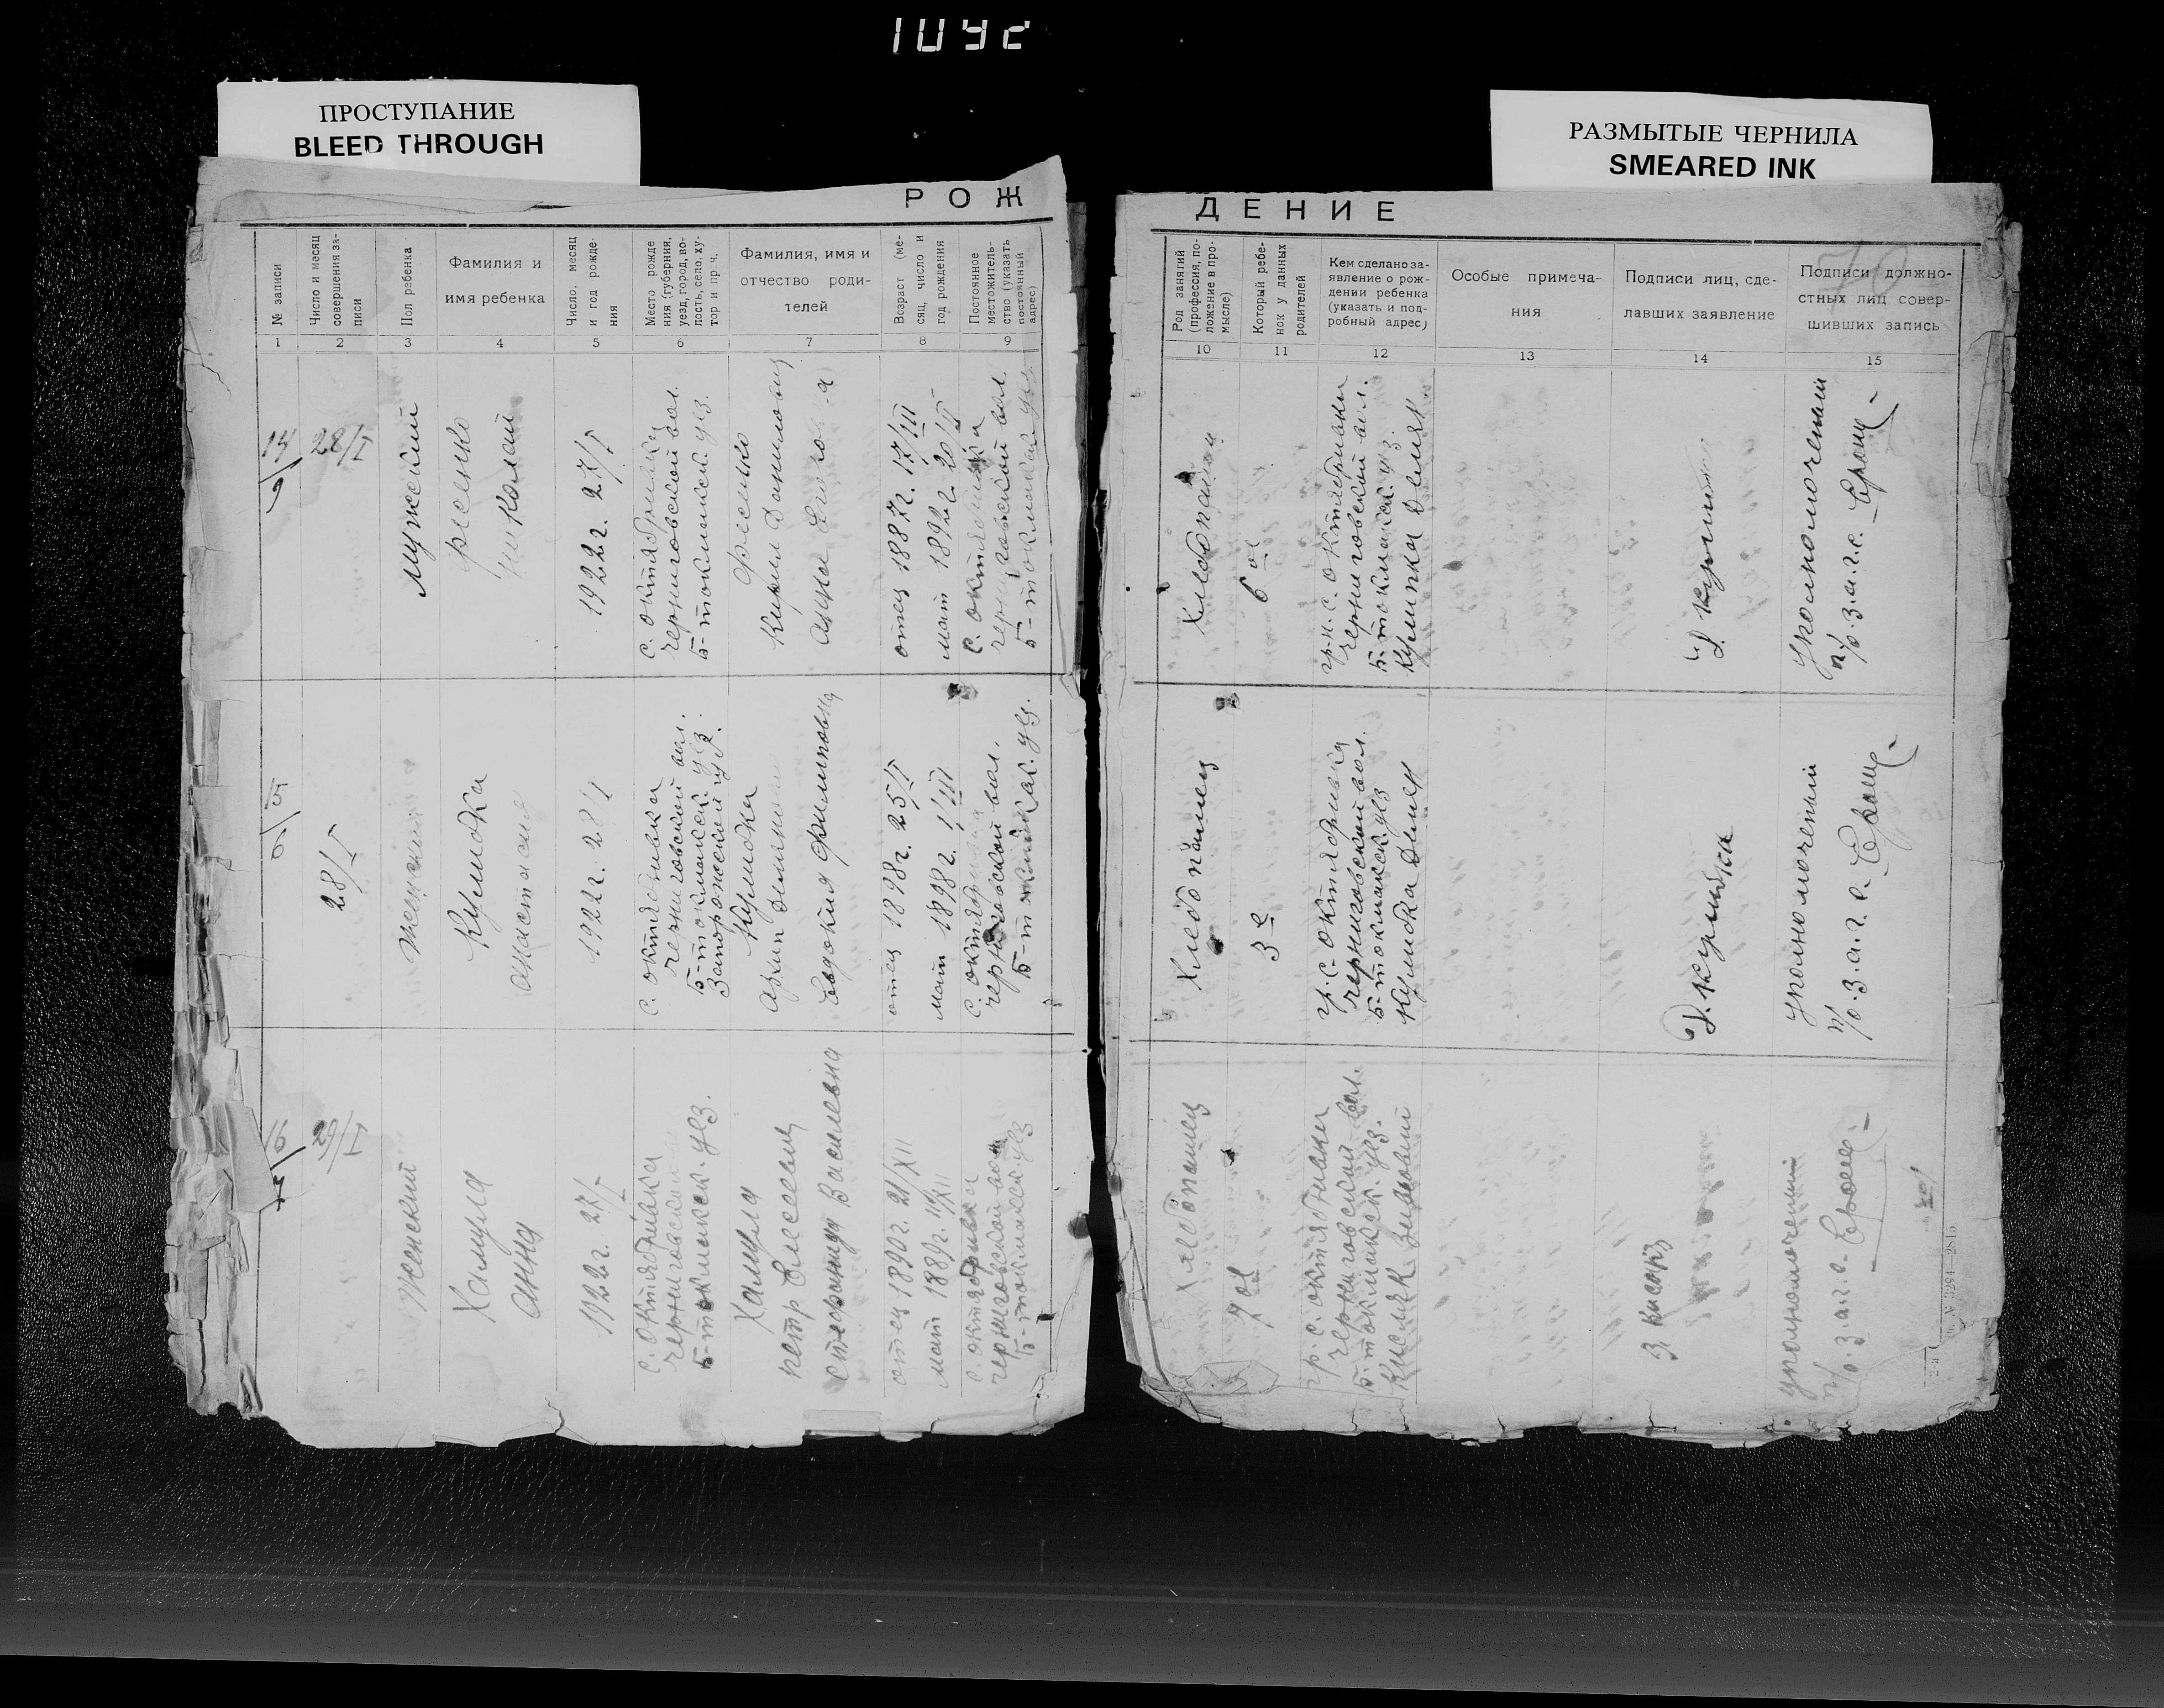 1042
ПРОСТУПАНИЕ
BLEED THROUGH
РАЗМЫТЫЕ ЧЕРНИЛА
SMEARED INK
РОЖ
ДЕНИЕ
№ записи
Число и месяц
совершения за-
писи
Пол ребенка
Фамилия и
имя ребенка
Число, месяц
и год рожде-
ния
Место рожде
ния (губерния,
уезд, город, во-
лость, село, ху-
тор и пр ч.
Фамилия, имя и
отчество роди-
телей
Возраст (ме-
сяц, число и
год рождения
Постоянное
местожитель-
ство (указать
постоянный
адрес)
Род занятий
(профессия, по-
ложение в про-
мысле)
Который ребе-
нок у данных
родителей
Кем сделано за-
явление о рож-
дении ребенка
(указать и под-
робный адрес)
Особые примеча-
ния
Подписи лиц, сде-
лавших заявление
Подписи должно-
стных лиц совер-
шивших запись
1
2
3
4
5
6
7
8
9
10
11
12
13
14
15
14
28/I
мужеский
Фесенко
Николай
1922г. 27/I
с. октябривка
черниговской вол.
Б-токмакск. уез.
Фесенко
Кирил Данилович
Анна
отец 1887г. 17/III
мат 1892г. 20/II
с.
черниговской вол.
Б-токмакск уез.
Хлебопашец
6 ой
гр. с. октябривки
черниговской вол.
Б-токмакск. уез.
уполномоченый
п/о. з.а.г.с.
15
28/I
женский
Кулибка
Анастасия
1922г. 28/I
с. октябривка
черниговской вол.
Б-токмакск. уез.
Запорожской губ.
Кулибка
Архип
Евдокия Филиповна
отец 1898г. 25/I
мат 1898г. 1/III
с. октябривка
черниговской вол.
Б-токмакск. уез.
Хлебопашец
3 е
гр. с. октябривка
черниговской вол.
Б-токмакск. уез
Кулибка
Д. Кулибка
уполномоченый
п/о. з.а.г.с.
16
29/I
Женский
Хамула
Анна
1922г. 27/I
с. октябривка
черниговской
Б-токмакск. уез.
Хамула
петр Елесеевич
Степанида Васильевна
отец 1890г. 21/XII
мат 1889г. 11/XII
с. октябривка
черниговской вол
Б-токмакск. уез
Хлебопашец
гр. с. октябривки
черниговской вол.
Б-токмакск. уез.
Кисляк
уполномоченый
п/о. з.а.г.с.